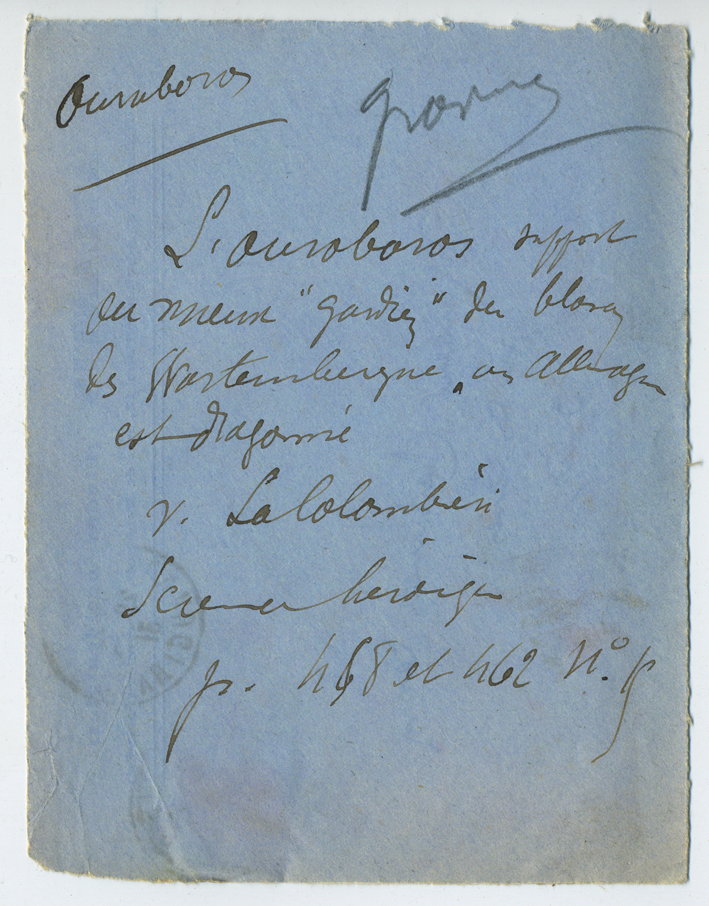 Ouroboros
gravure
L'ouroboros support
ou mieux "gardien" du blason
de Wurtembergne, en Allemagne
est dragonné
v. La Colombière
Science héroïque
p. 468 et 462 N°.